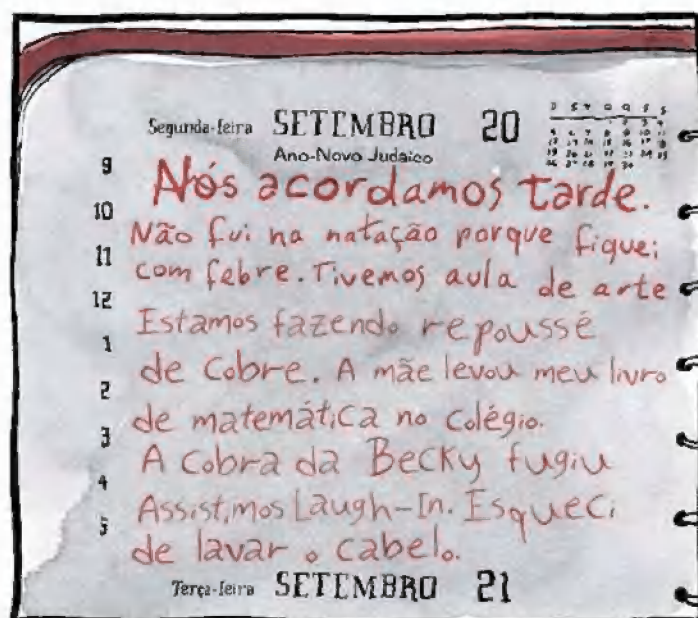 Segunda-feira SETEMBRO 20
Ano-Novo Judaico
D S T Q Q S S
9
Nós acordamos tarde.
10
Não fui na natação porque fiquei
11
com febre. Tivemos aula de arte
12
Estamos fazendo repoussé
1
de cobre. A mãe levou meu livro
2
de matemática no colégio.
3
A cobra da Becky fugiu
4
Assistimos Laugh-In. Esqueci
5
de lavar o cabelo.
Terça-feira SETEMBRO 21